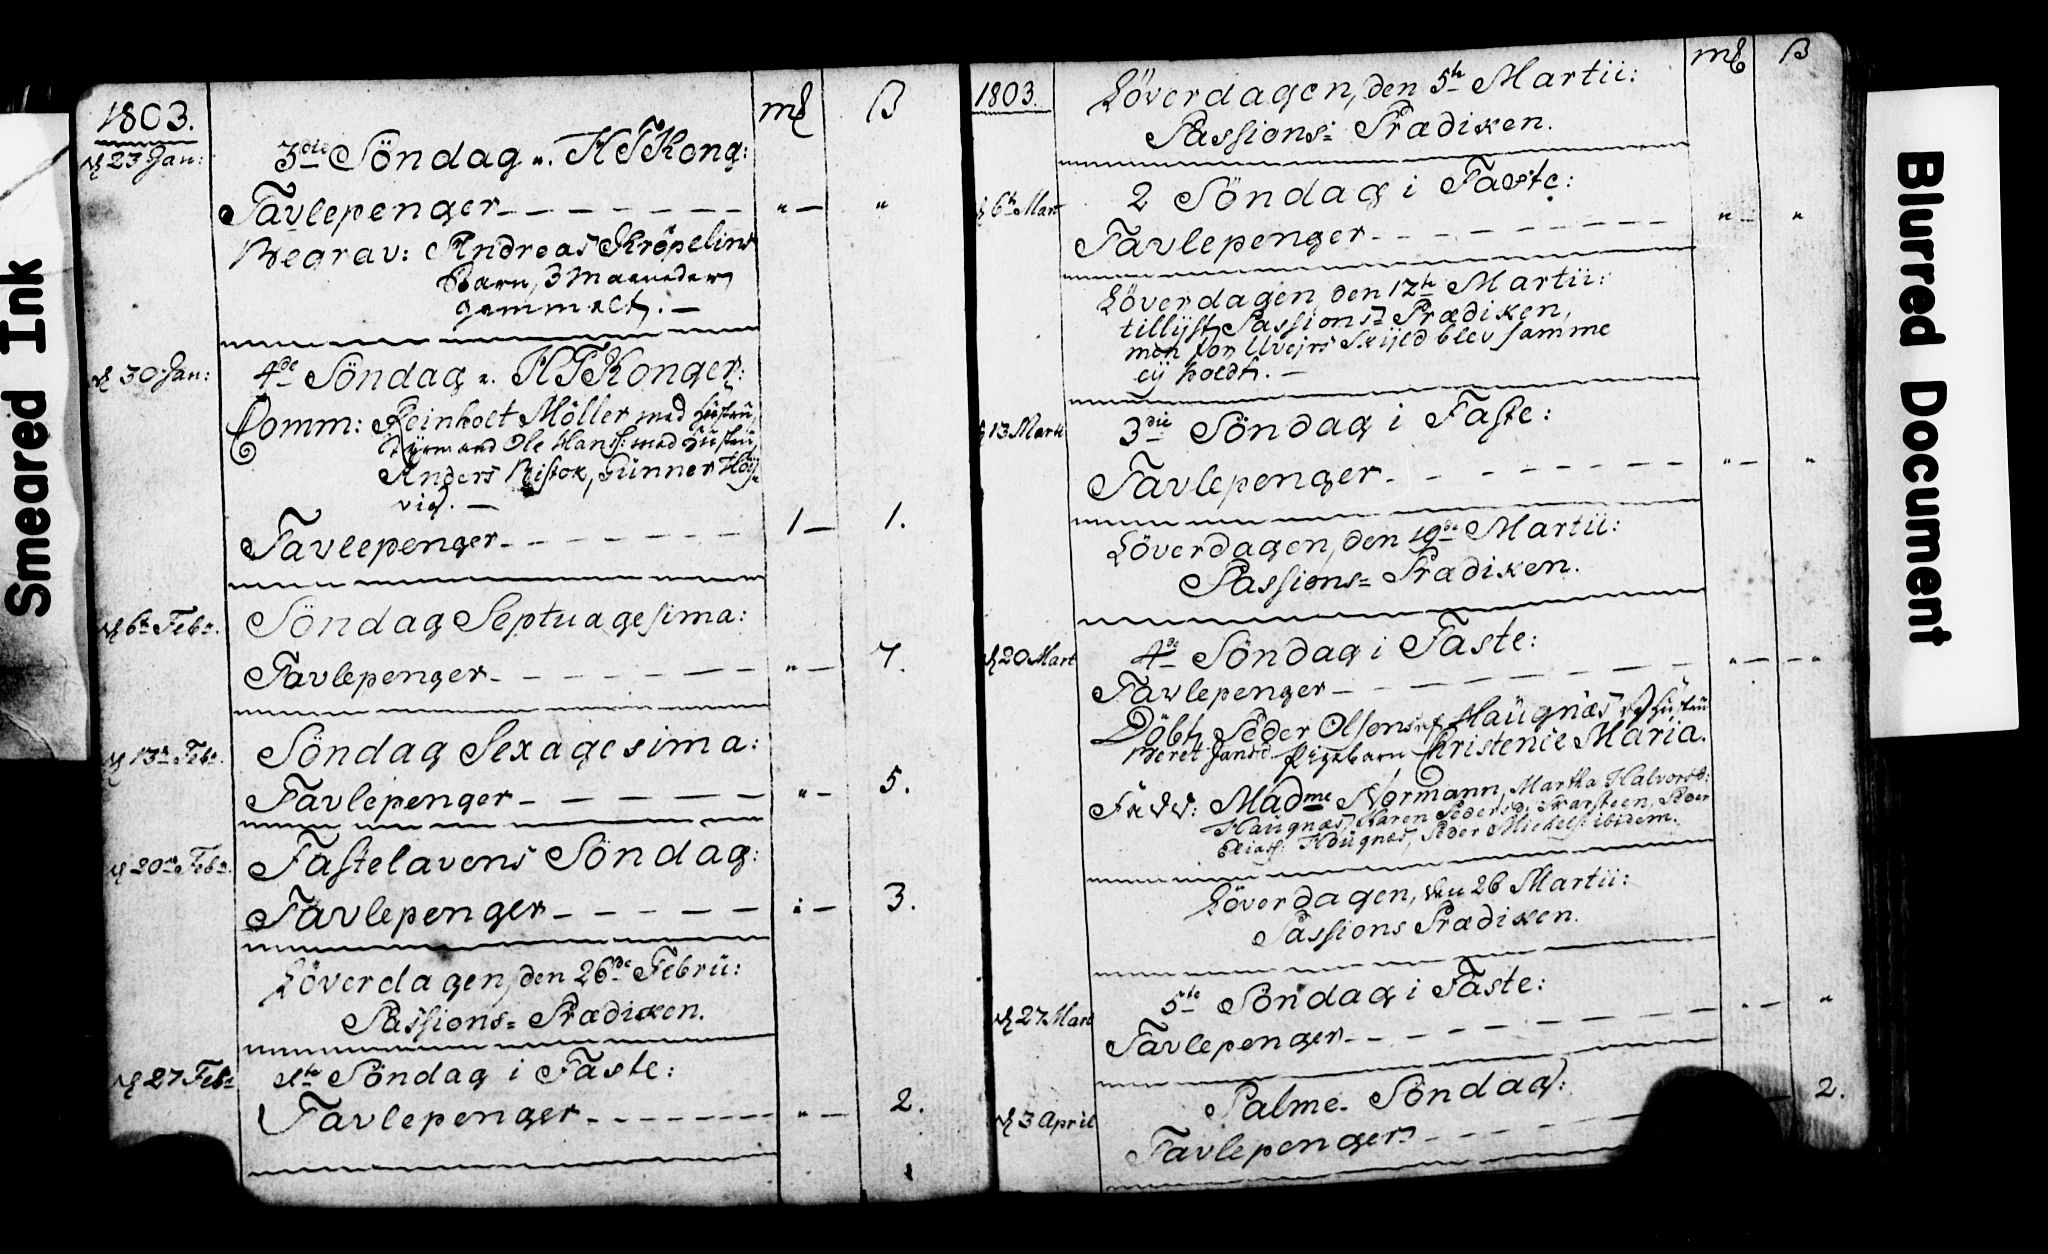 Smeared Ink
1803.
mk ß
d 23 Jan: 3die Söndag e. H3Kong:
Tavlepenger - - - - - - - " - "
Begrav: Andreas Kröpelins
Barn, 3 Maaneder
gammelt. -
d 30 Jan: 4de Söndag e. H3Konger:
Comm: Reinholt Möller med Hustru,
Ole Hans: med Hustru,
Anders Ristok, Gunner Höy-
vig. -
Tavlepenger - - - - - - - 1 - 1.
d 6te Febr. Söndag Septuagesima:
Tavlepenger - - - - - - - " - 7.
d 13de Febr. Söndag Sexagesima:
Tavlepenger - - - - - - " - 5.
d 20de Febr. Fastelavens Söndag:
Tavlepenger - - - - - : - 3.
Löverdagen, den 26de Febru:
Passions= Prædiken.
d 27 Febr 1ste Söndag i Faste:
Tavlepenger - - - - - - - " - 2.
1803. Löverdagen, den 5te Martii: mk ß
Passions= Prædiken.
d 6te Mart 2 Söndag i Faste:
Tavlepenger - - - - - - - " - "
Löverdagen, den 12te Martii:
tillyst Passions= Prædiken,
men for Uvejrs Skyld blev samme
ey holdt. -
d 13 Marti 3die Söndag i Faste:
Tavlepenger - - - - - - - " - "
Löverdagen, den 19de Martii:
Passions= Prædiken.
d 20 Mart 4de Söndag i Faste:
Tavlepenger - - - - - - - " - - - "
Döbt Peder Olsens af Haugnæs og Hustru
Beret Jansd. Pigebarn Christenie Maria.
Fadd: Madme Normann, Martha Halvorsd:
Haugnæs, Karen Pedersd. Peder
Elias: Haugnæs, Peder Michels: ibidem.
Löverdagen, den 26 Martii:
Passions Prædiken.
d 27 Mart 5te Söndag i Faste:
Tavlepenger - - - - - - - " - "
d 3 April Palme- Söndag:
Tavlepenger - - - - - - 2.
Blurred Document